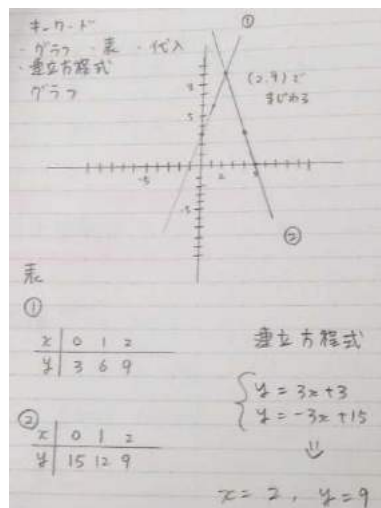 キーワード
・グラフ ・表 ・代入
・連立方程式
グラフ
①
(2,9)で
まじわる
5
-5
5
-5
②
表
①
x 0 1 2
y 3 6 9
②
x 0 1 2
y 15 12 9
連立方程式
y = 3x+3
y = -3x+15
⇓
x = 2, y = 9